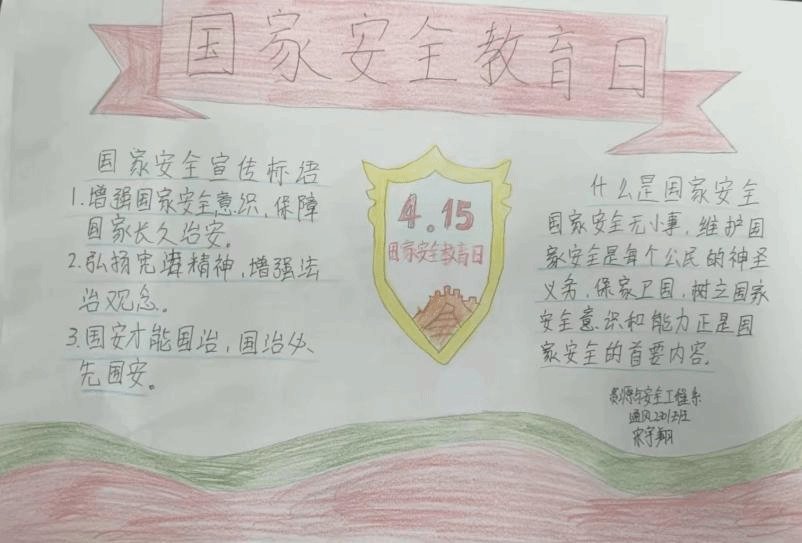 国家安全教育日
国家安全宣传标语
1.增强国家安全意识,保障
国家长久治安。
2.弘扬宪法精神,增强法
治观念。
3.国安才能国治,国治必
先国安。
4.15
国家安全教育日
什么是国家安全
国家安全无小事,维护国
家安全是每个公民的神圣
义务,保家卫国,树立国家
安全意识和能力正是国
家安全的首要内容。
资源与安全工程系
通风2301班
宋宇翔